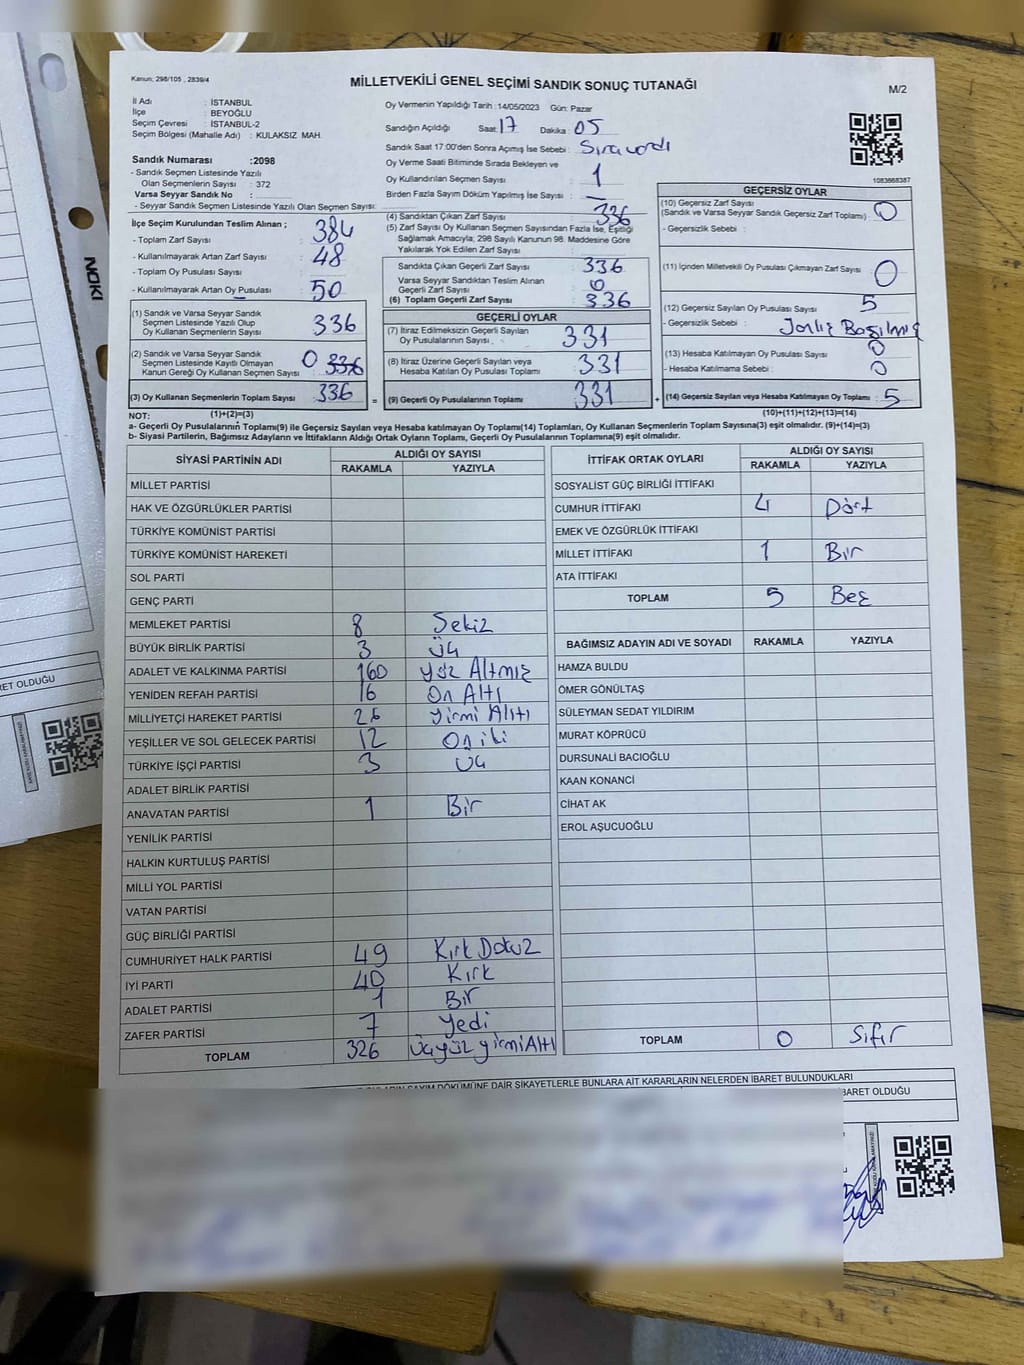 Kanun; 298/105 , 2839/4
MİLLETVEKİLİ GENEL SEÇİMİ SANDIK SONUÇ TUTANAĞI
M/2
İl Adı : İSTANBUL
İlçe : BEYOĞLU
Seçim Çevresi : İSTANBUL-2
Seçim Bölgesi (Mahalle Adı) : KULAKSIZ MAH.
Sandık Numarası :2098
- Sandık Seçmen Listesinde Yazılı
Olan Seçmenlerin Sayısı : 372
Varsa Seyyar Sandık No :
- Seyyar Sandık Seçmen Listesinde Yazılı Olan Seçmenlerin Sayısı:
Oy Vermenin Yapıldığı Tarih :14/05/2023 Gün: Pazar
Sandığın Açıldığı Saat: 17 Dakika: 05
Sandık Saat 17:00'den Sonra Açımış İse Sebebi : Sıra vardı
Oy Verme Saati Bitiminde Sırada Bekleyen ve
Oy Kullandırılan Seçmen Sayısı : 1
Birden Fazla Sayım Döküm Yapılmış İse Sayısı : —
1083668387
İlçe Seçim Kurulundan Teslim Alınan ;
- Toplam Zarf Sayısı : 384
- Kullanılmayarak Artan Zarf Sayısı : 48
- Toplam Oy Pusulası Sayısı :
- Kullanılmayarak Artan Oy Pusulası : 50
(1) Sandık ve Varsa Seyyar Sandık
Seçmen Listesinde Yazılı Olup
Oy Kullanan Seçmenlerin Sayısı : 336
(2) Sandık ve Varsa Seyyar Sandık
Seçmen Listesinde Kayıtlı Olmayan
Kanun Gereği Oy Kullanan Seçmen Sayısı : 0 336
(3) Oy Kullanan Seçmenlerin Toplam Sayısı : 336 =
(4) Sandıktan Çıkan Zarf Sayısı : 336
(5) Zarf Sayısı Oy Kullanan Seçmen Sayısından Fazla İse, Eşitliği
Sağlamak Amacıyla; 298 Sayılı Kanunun 98. Maddesine Göre
Yakılarak Yok Edilen Zarf Sayısı :
Sandıkta Çıkan Geçerli Zarf Sayısı : 336
Varsa Seyyar Sandıktan Teslim Alınan
Geçerli Zarf Sayısı : 0
(6) Toplam Geçerli Zarf Sayısı : 336
GEÇERLİ OYLAR
(7) İtiraz Edilmeksizin Geçerli Sayılan
Oy Pusulalarının Sayısı : 331
(8) İtiraz Üzerine Geçerli Sayılan veya
Hesaba Katılan Oy Pusulası Toplamı : 331
(9) Geçerli Oy Pusulalarının Toplamı : 331 +
GEÇERSİZ OYLAR
(10) Geçersiz Zarf Sayısı
(Sandık ve Varsa Seyyar Sandık Geçersiz Zarf Toplamı) : 0
- Geçersizlik Sebebi :
(11) İçinden Milletvekili Oy Pusulası Çıkmayan Zarf Sayısı : 0
(12) Geçersiz Sayılan Oy Pusulası Sayısı : 5
- Geçersizlik Sebebi : Basılmış
(13) Hesaba Katılmayan Oy Pusulası Sayısı : 0
- Hesaba Katılmama Sebebi : 0
(14) Geçersiz Sayılan veya Hesaba Katılmayan Oy Toplamı : 5
NOT: (1)+(2)=(3) (10)+(11)+(12)+(13)=(14)
a- Geçerli Oy Pusulalarının Toplamı(9) ile Geçersiz Sayılan veya Hesaba katılmayan Oy Toplamı(14) Toplamları, Oy Kullanan Seçmenlerin Toplam Sayısına(3) eşit olmalıdır. (9)+(14)=(3)
b- Siyasi Partilerin, Bağımsız Adayların ve İttifakların Aldığı Ortak Oyların Toplamı, Geçerli Oy Pusulalarının Toplamına(9) eşit olmalıdır.
SİYASİ PARTİNİN ADI ALDIĞI OY SAYISI
RAKAMLA YAZIYLA
MİLLET PARTİSİ
HAK VE ÖZGÜRLÜKLER PARTİSİ
TÜRKİYE KOMÜNİST PARTİSİ
TÜRKİYE KOMÜNİST HAREKETİ
SOL PARTİ
GENÇ PARTİ
MEMLEKET PARTİSİ 8 Sekiz
BÜYÜK BİRLİK PARTİSİ 3 Üç
ADALET VE KALKINMA PARTİSİ 160 Yüz Altmış
YENİDEN REFAH PARTİSİ 16 On Altı
MİLLİYETÇİ HAREKET PARTİSİ 26 Yirmi Altı
YEŞİLLER VE SOL GELECEK PARTİSİ 12 On iki
TÜRKİYE İŞÇİ PARTİSİ 3 Üç
ADALET BİRLİK PARTİSİ
ANAVATAN PARTİSİ 1 Bir
YENİLİK PARTİSİ
HALKIN KURTULUŞ PARTİSİ
MİLLİ YOL PARTİSİ
VATAN PARTİSİ
GÜÇ BİRLİĞİ PARTİSİ
CUMHURİYET HALK PARTİSİ 49 Kırk Dokuz
İYİ PARTİ 40 Kırk
ADALET PARTİSİ 1 Bir
ZAFER PARTİSİ 7 Yedi
TOPLAM 326 Üçyüz yirmi Altı
İTTİFAK ORTAK OYLARI ALDIĞI OY SAYISI
RAKAMLA YAZIYLA
SOSYALİST GÜÇ BİRLİĞİ İTTİFAKI
CUMHUR İTTİFAKI 4 Dört
EMEK VE ÖZGÜRLÜK İTTİFAKI
MİLLET İTTİFAKI 1 Bir
ATA İTTİFAKI
TOPLAM 5 Beş
BAĞIMSIZ ADAYIN ADI VE SOYADI RAKAMLA YAZIYLA
HAMZA BULDU
ÖMER GÖNÜLTAŞ
SÜLEYMAN SEDAT YILDIRIM
MURAT KÖPRÜCÜ
DURSUNALİ BACIOĞLU
KAAN KONANCİ
CİHAT AK
EROL AŞUCUOĞLU
TOPLAM 0 Sıfır
SAYIM DÖKÜMÜNE DAİR ŞİKAYETLERLE BUNLARA AİT KARARLARIN NELERDEN İBARET BULUNDUKLARI
İBARET OLDUĞU
NOKI
RET OLDUĞU